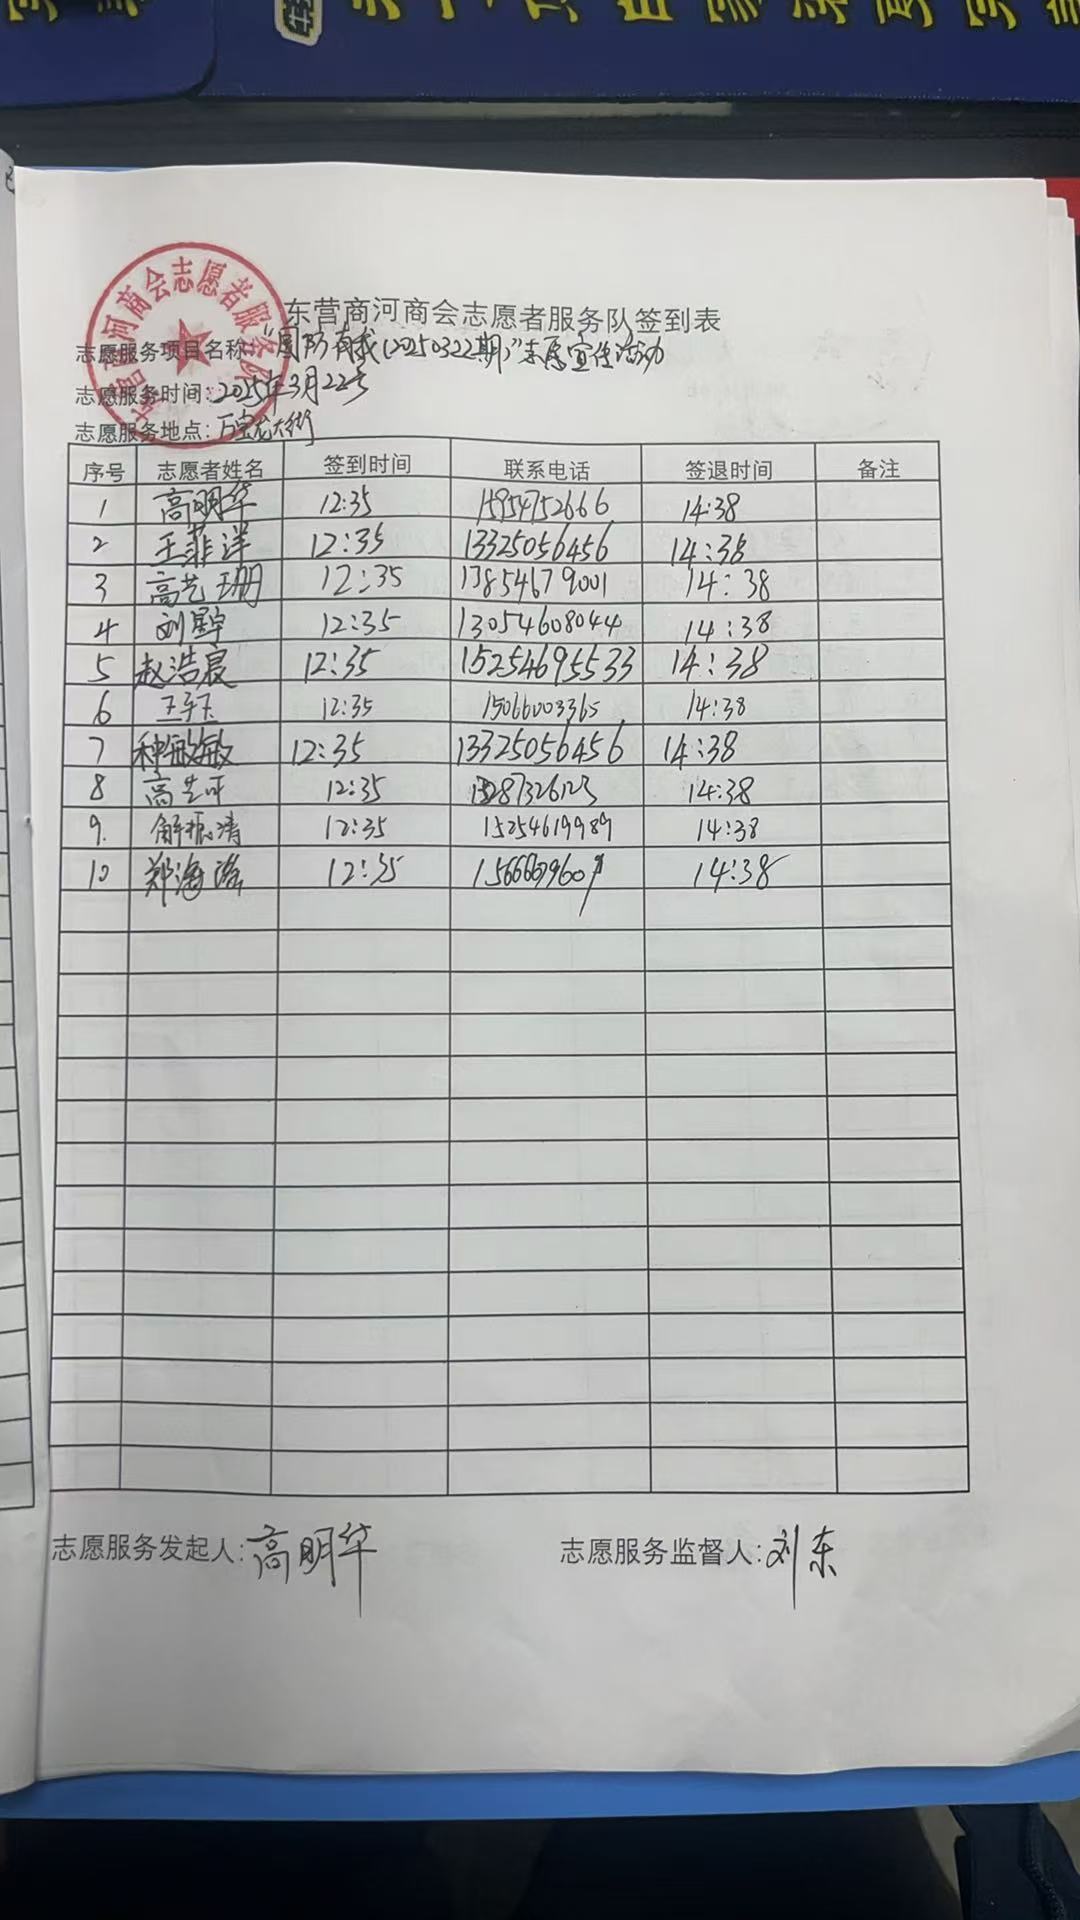 东营商河商会志愿者服务队签到表
志愿服务项目名称:"国防有我(20250322期)"志愿宣传活动
志愿服务时间:2025年3月22号
志愿服务地点:万宝龙大街
序号 志愿者姓名 签到时间 联系电话 签退时间 备注
1 高明华 12:35 15954752666 14:38
2 王菲洋 12:35 13325056456 14:38
3 高艺珊 12:35 13854679001 14:38
4 刘 12:35 13054608044 14:38
5 赵浩宸 12:35 15254695533 14:38
6 12:35 15066003365 14:38
7 种敏敏 12:35 13325056456 14:38
8 高艺平 12:35 14:38
9. 解振清 12:35 15254619989 14:38
10 郑海 12:35 14:38
志愿服务发起人:高明华 志愿服务监督人:刘东